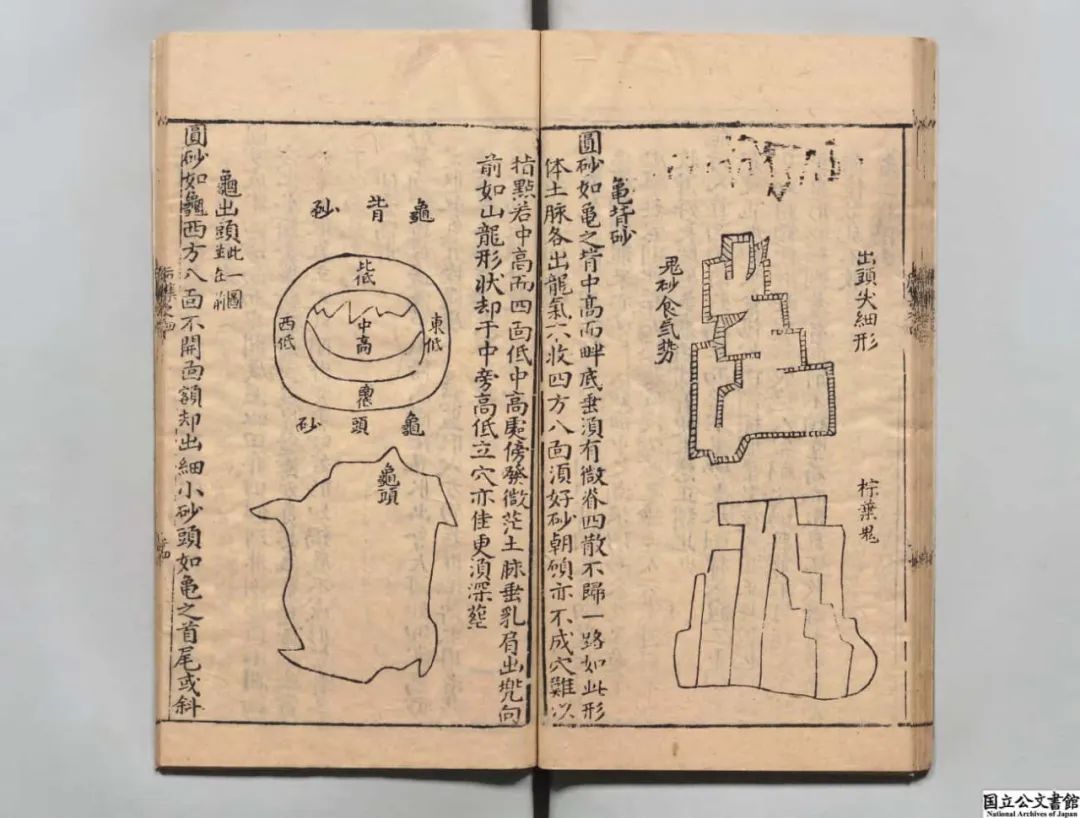 出頭失細形
鬼砂食氣势
柠葉鬼
龜背砂
圓砂如龜之背中高而畔底垂須有微脊四散不歸一路如此形
体土脉各出龍氣不收四方八面須好砂朝顧亦不成穴難以
指點若中高而四面低中高處傍發微茫土脉垂乳唇出兜向
前如山龍形状却于中旁高低立穴亦佳更須深塟
龜背砂
北低
東低
中高
西低
龜頭砂
龜頭
龜出頭此一圖並在前
圓砂如龜西方八面不開面額却出細小砂頭如龜之首尾或斜
国立公文書館
National Archives of Japan